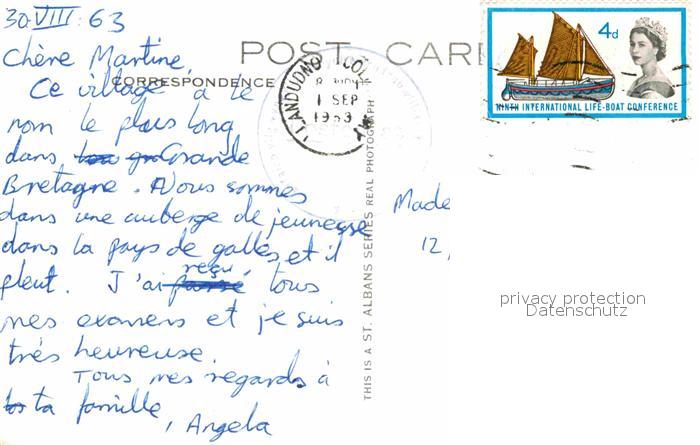 30.VIII.63
POST CAR
CORRESPONDENCE
Chère Martine,
Ce village a le
nom le plus long
dans Grande
Bretagne. Nous sommes
dans une auberge de jeunesse
dans la pays de galles et il
pleut. J'ai reçu tous
mes examens et je suis
très heureuse.
Tous mes regards à
ta famille,
, Angela
LLANDUDNO COL
1 SEP
1963
4d
NINTH INTERNATIONAL LIFE-BOAT CONFERENCE
THIS IS A ST. ALBANS SERIES REAL PHOTOGRAPH
Made
12,
privacy protection
Datenschutz